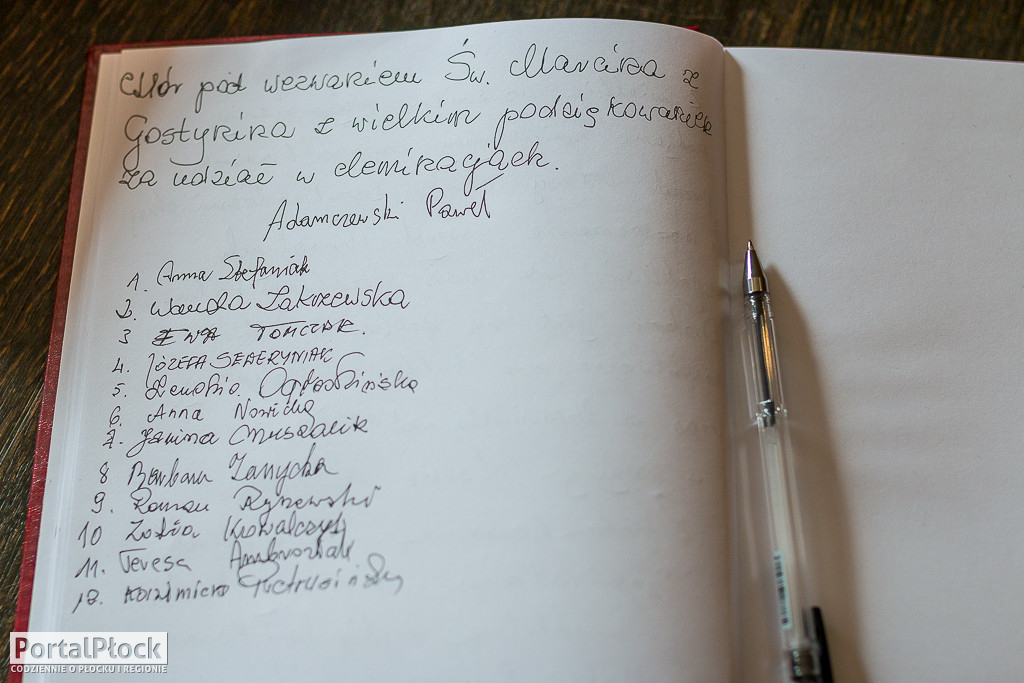 Chór pod wezwaniem Św. Marcina z
Gostynina z wielkim podziękowaniem
za udział w eliminacjach.
Adamczewski Paweł
1. Anna Stefaniak
2. Wanda Zakrzewska
3 EWA TOMCZAK.
4. JÓZEFA SEWERYNIAK
5. Zenobia Ogrodzińska
6. Anna Nowicka
7. Janina
8 Barbara
9. Roman Ryszewski
10 Zofia Kowalczyk
11. Teresa Ambroziak
12. Kazimierz
PortalPłock
CODZIENNIE O PŁOCKU I REGIONIE